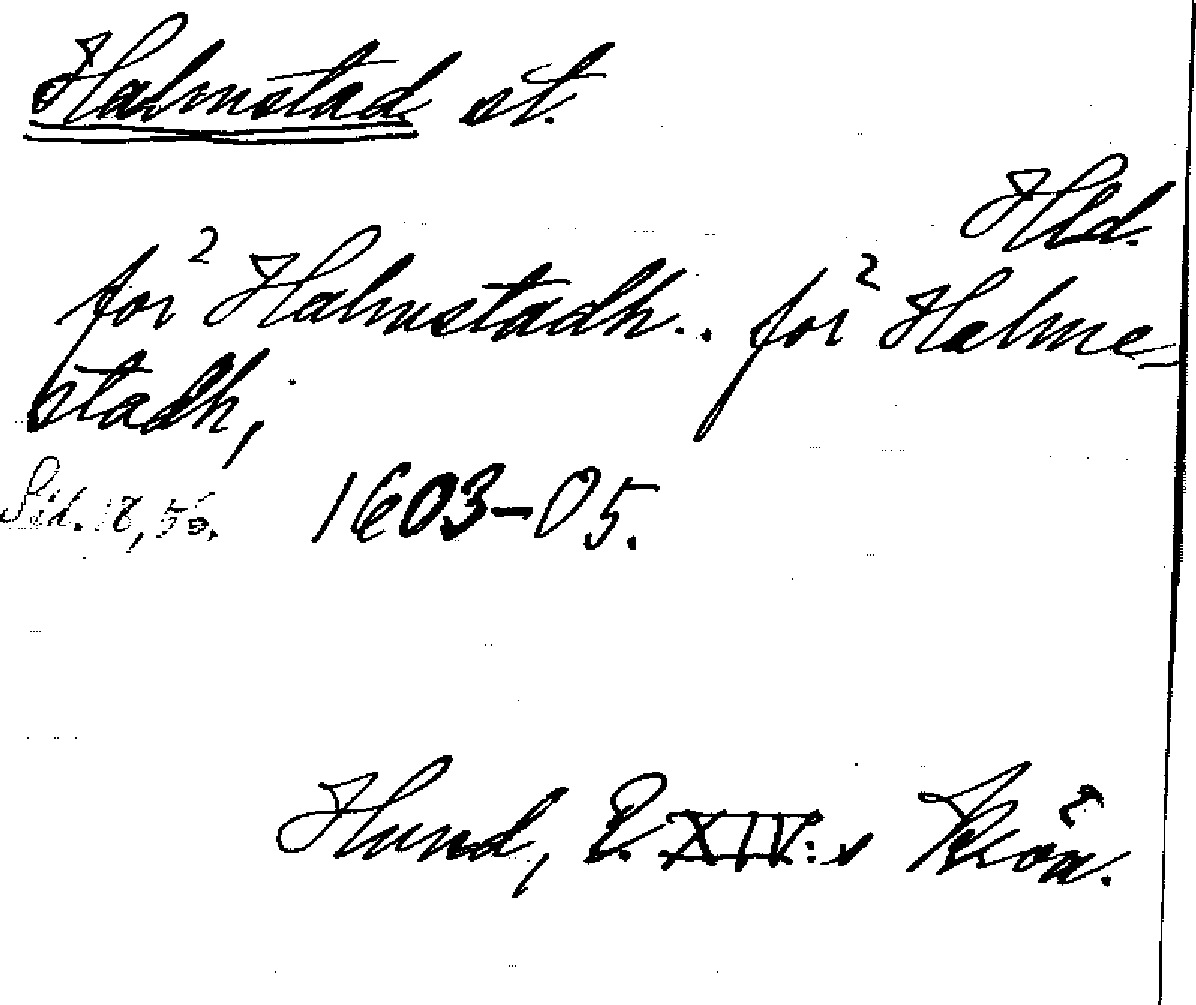 Halmstad st.
Hld.
för Halmstadh.. för Halme-
stadh,
Sid. 18, 56. 1603-05.
Hund, E. XIV:s Krön.